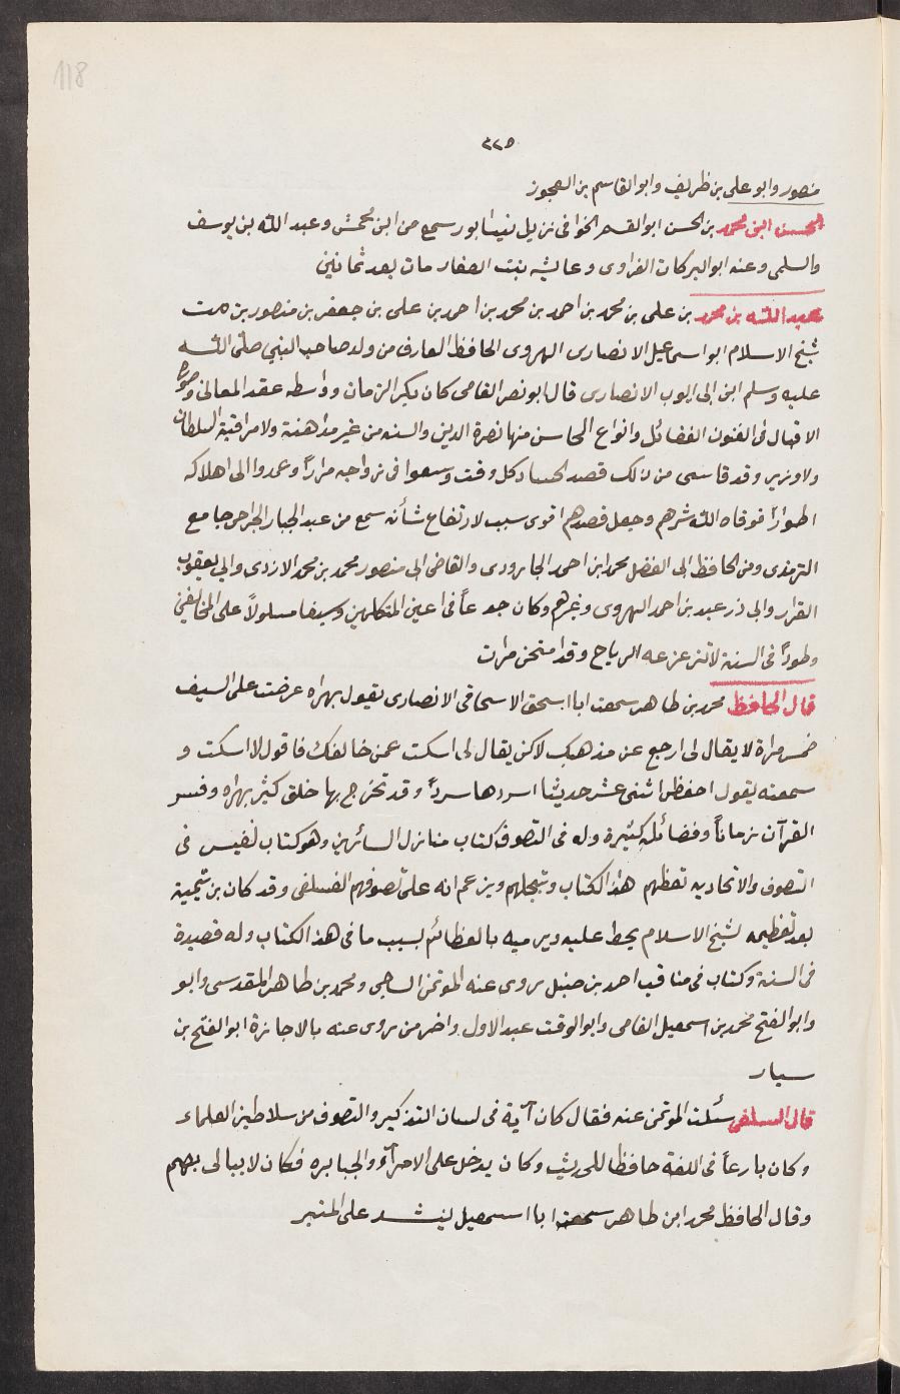 118
٢٢٥
منصور وابو على بن ظريف وابو القاسم بن العجوز
الحسن ابن محمد بن الحسن ابو القسم الخوافى نزيل نيسابور سمع من ابن محمش وعبد الله بن يوسف
والسلمى وعنه ابو البركات الفراوى وعائشه بنت الصفار مات بعد ثمانين
عبد الله بن محمد بن على بن محمد بن احمد بن محمد بن احمد بن على بن جعفر بن منصور بن مت
شيخ الاسلام ابو اسماعيل الانصارى الهروى الحافظ العارف من ولد صاحب النبي صلى الله
عليه وسلم ابن ابى ايوب الانصارى قال ابو نصر الفامى كان بكر الزمان وواسطه عقد المعانى وصورة
الاقبال فى الفنون الفضائل وانواع المحاسن منها نصرة الدين والسنه من غير مداهنة ولا مراقبة السلطان
ولا وزير وقد قاسى من ذلك قصد الحساد كل وقت وسعوا فى زواجه مراراً وعمدوا الى اهلاكه
اطواراً فوقاه الله شرهم وجعل قصدهم اقوى سبب لارتفاع شأنه سمع من عبد الجبار الجراحى جامع
الترمذى ومن الحافظ ابى الفضل محمد ابن احمد الجارودى والقاضى ابى منصور محمد بن محمد الازدى وابي يعقوب
القراب وابى ذر عبد بن احمد الهروى وغيرهم وكان جدعاً فى اعين المتكلمين وسيفا مسلولاً على المخالفين
وطوداً فى السنة لا تزعزعه الرياح وقد امتحن مرات
قال الحافظ محمد بن طاهر سمعت ابا اسحق الاسحاقى الانصارى يقول بهراه عرضت على السيف
خمس مراة لا يقال لى ارجع عن مذهبك لاكن يقال لى اسكت عمن خالفك فاقول لا اسكت و
سمعته يقول احفظ اثنى عشر حديثا اسردها سرداً وقد تخرج بها خلق كثير بهراه وفسر
القرآن زماناً وفضائله كثيرة وله فى التصوف كتاب منازل السائرين وهو كتاب نفيس فى
التصوف والاتحاديه تعظهم هذا الكتاب وتبجلهم ويزعم انه على تصوفهم الفسلفى وقد كان بن تيمية
بعد تعظيمه لشيخ الاسلام يحط عليه ويرميه بالعظائم بسبب ما فى هذ الكتاب وله قصيدة
فى السنة وكتاب فى مناقب احمد بن حنبل روى عنه الموتمن الساجى ومحمد بن طاهر المقدسى وابو
وابو الفتح محمد بن اسمعيل الفامى وابو الوقت عبد الاول واخر من روى عنه بالاجازة ابو الفتح بن
سيار
قال السلفى سئلت الموتمن عنه فقال كان آية فى لسان التذكير والتصوف من سلاطين العلماء
وكان بارعاً فى اللغة حافظا للحديث وكان يدخل على الامرآء والجبابره فكان لا يبالى بهم
وقال الحافظ محمد ابن طاهر سمعت ابا اسمعيل ينشد على المنبر